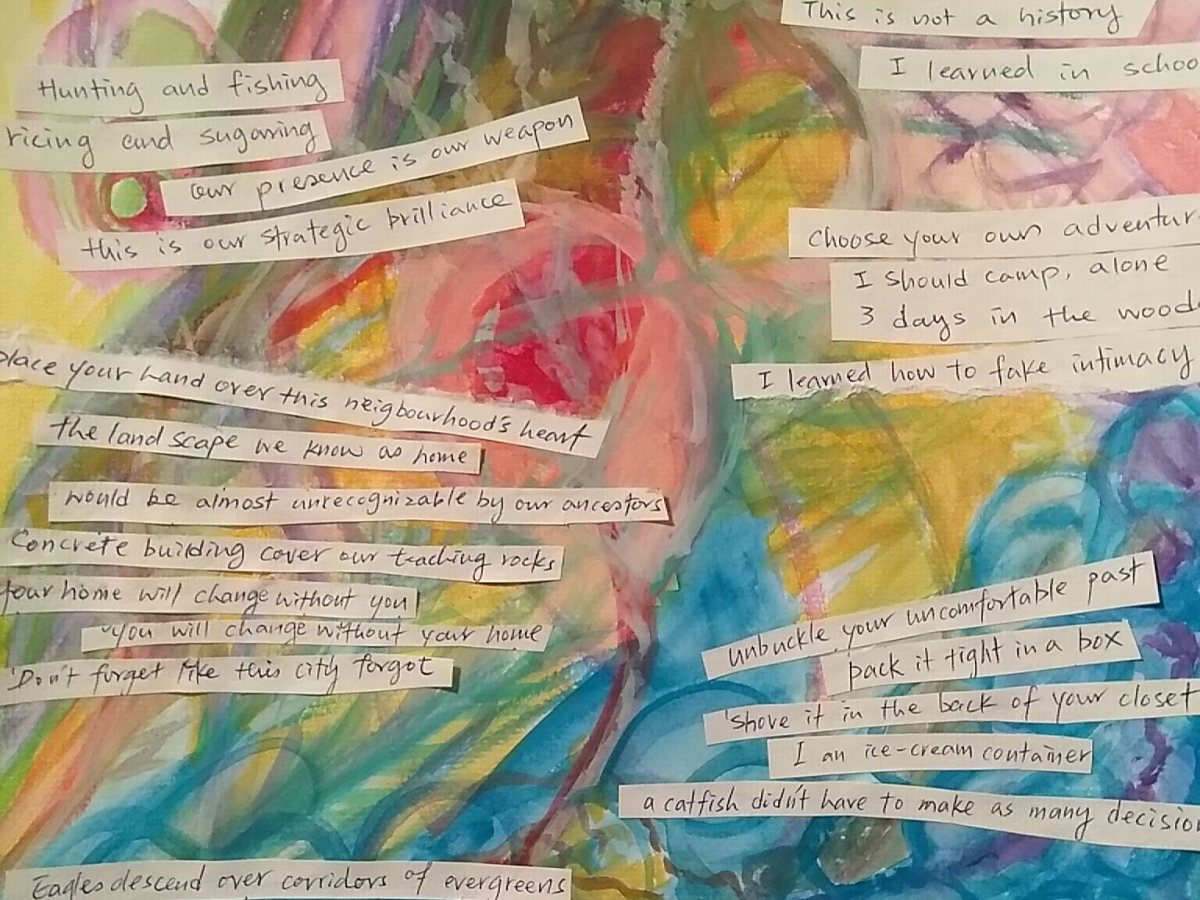 Hunting and fishing
ricing and sugaring
our presence is our weapon
this is our strategic brilliance
place your hand over this neigbourhood's heart
the land scape we know as home
would be almost unrecognizable by our ancestors
Concrete building cover our teaching rocks
Your home will change without you
you will change without your home
Don't forget like this city forgot
Eagles descend over corridors of evergreens
This is not a history
I learned in schoo
choose your own adventur
I should camp, alone
3 days in the wood
I learned how to fake intimacy
unbuckle your uncomfortable past
pack it tight in a box
shove it in the back of your closet
I an ice-cream container
a catfish didn't have to make as many decision